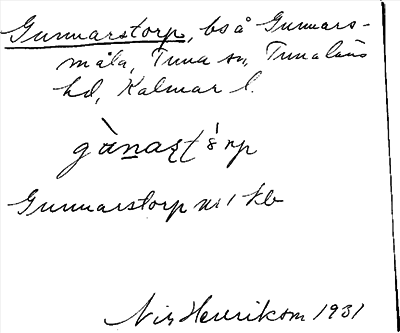 Gunnarstorp, bs å Gunnars-
måla, Tuna sn, Tunaläns
hd, Kalmar l.
Gunnarstorp nr 1 kb
Nils Henrikson 1931